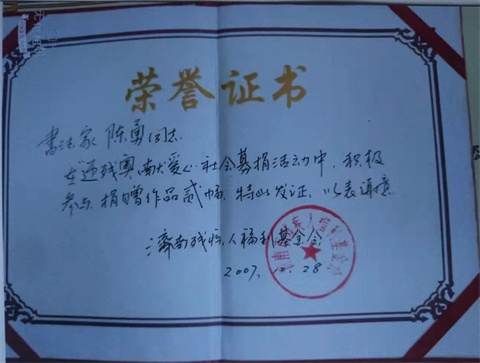 荣誉证书
書法家 陈勇同志:
在“迎残奥,献爱心”社会募捐活动中,积极
参与,捐赠作品贰幅,特此发证,以表谢意
济南残疾人福利基金会
2007.10.28